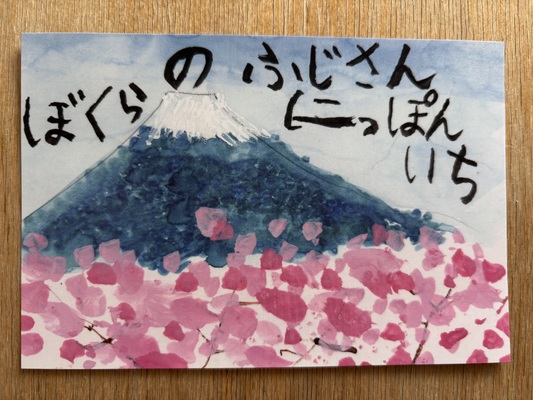 ぼくらの ふじさん
にっぽん
いち